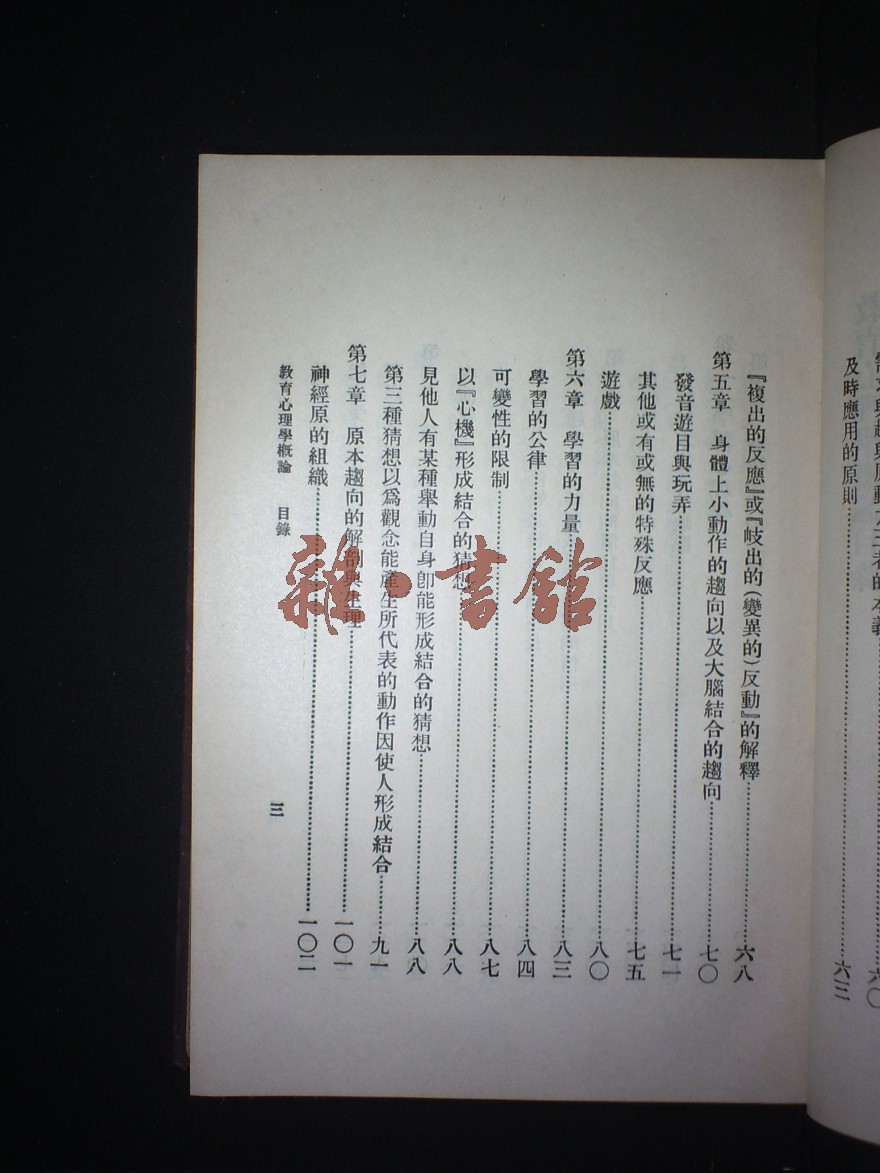 及時應用的原則……六三
『複出的反應』或『岐出的(變異的)反動』的解釋……六八
第五章　身體上小動作的趨向以及大腦結合的趨向……七〇
發音遊目與玩弄……七一
其他或有或無的特殊反應……七五
遊戲……八〇
第六章　學習的力量……八三
學習的公律……八四
可變性的限制……八七
以『心機』形成結合的猜想……八八
見他人有某種舉動自身卽能形成結合的猜想……八八
第三種猜想以爲觀念能產生所代表的動作因使人形成結合……九一
第七章　原本趨向的解剖與生理……一〇一
神經原的組織……一〇二
教育心理學概論　目錄
三
雜·書館